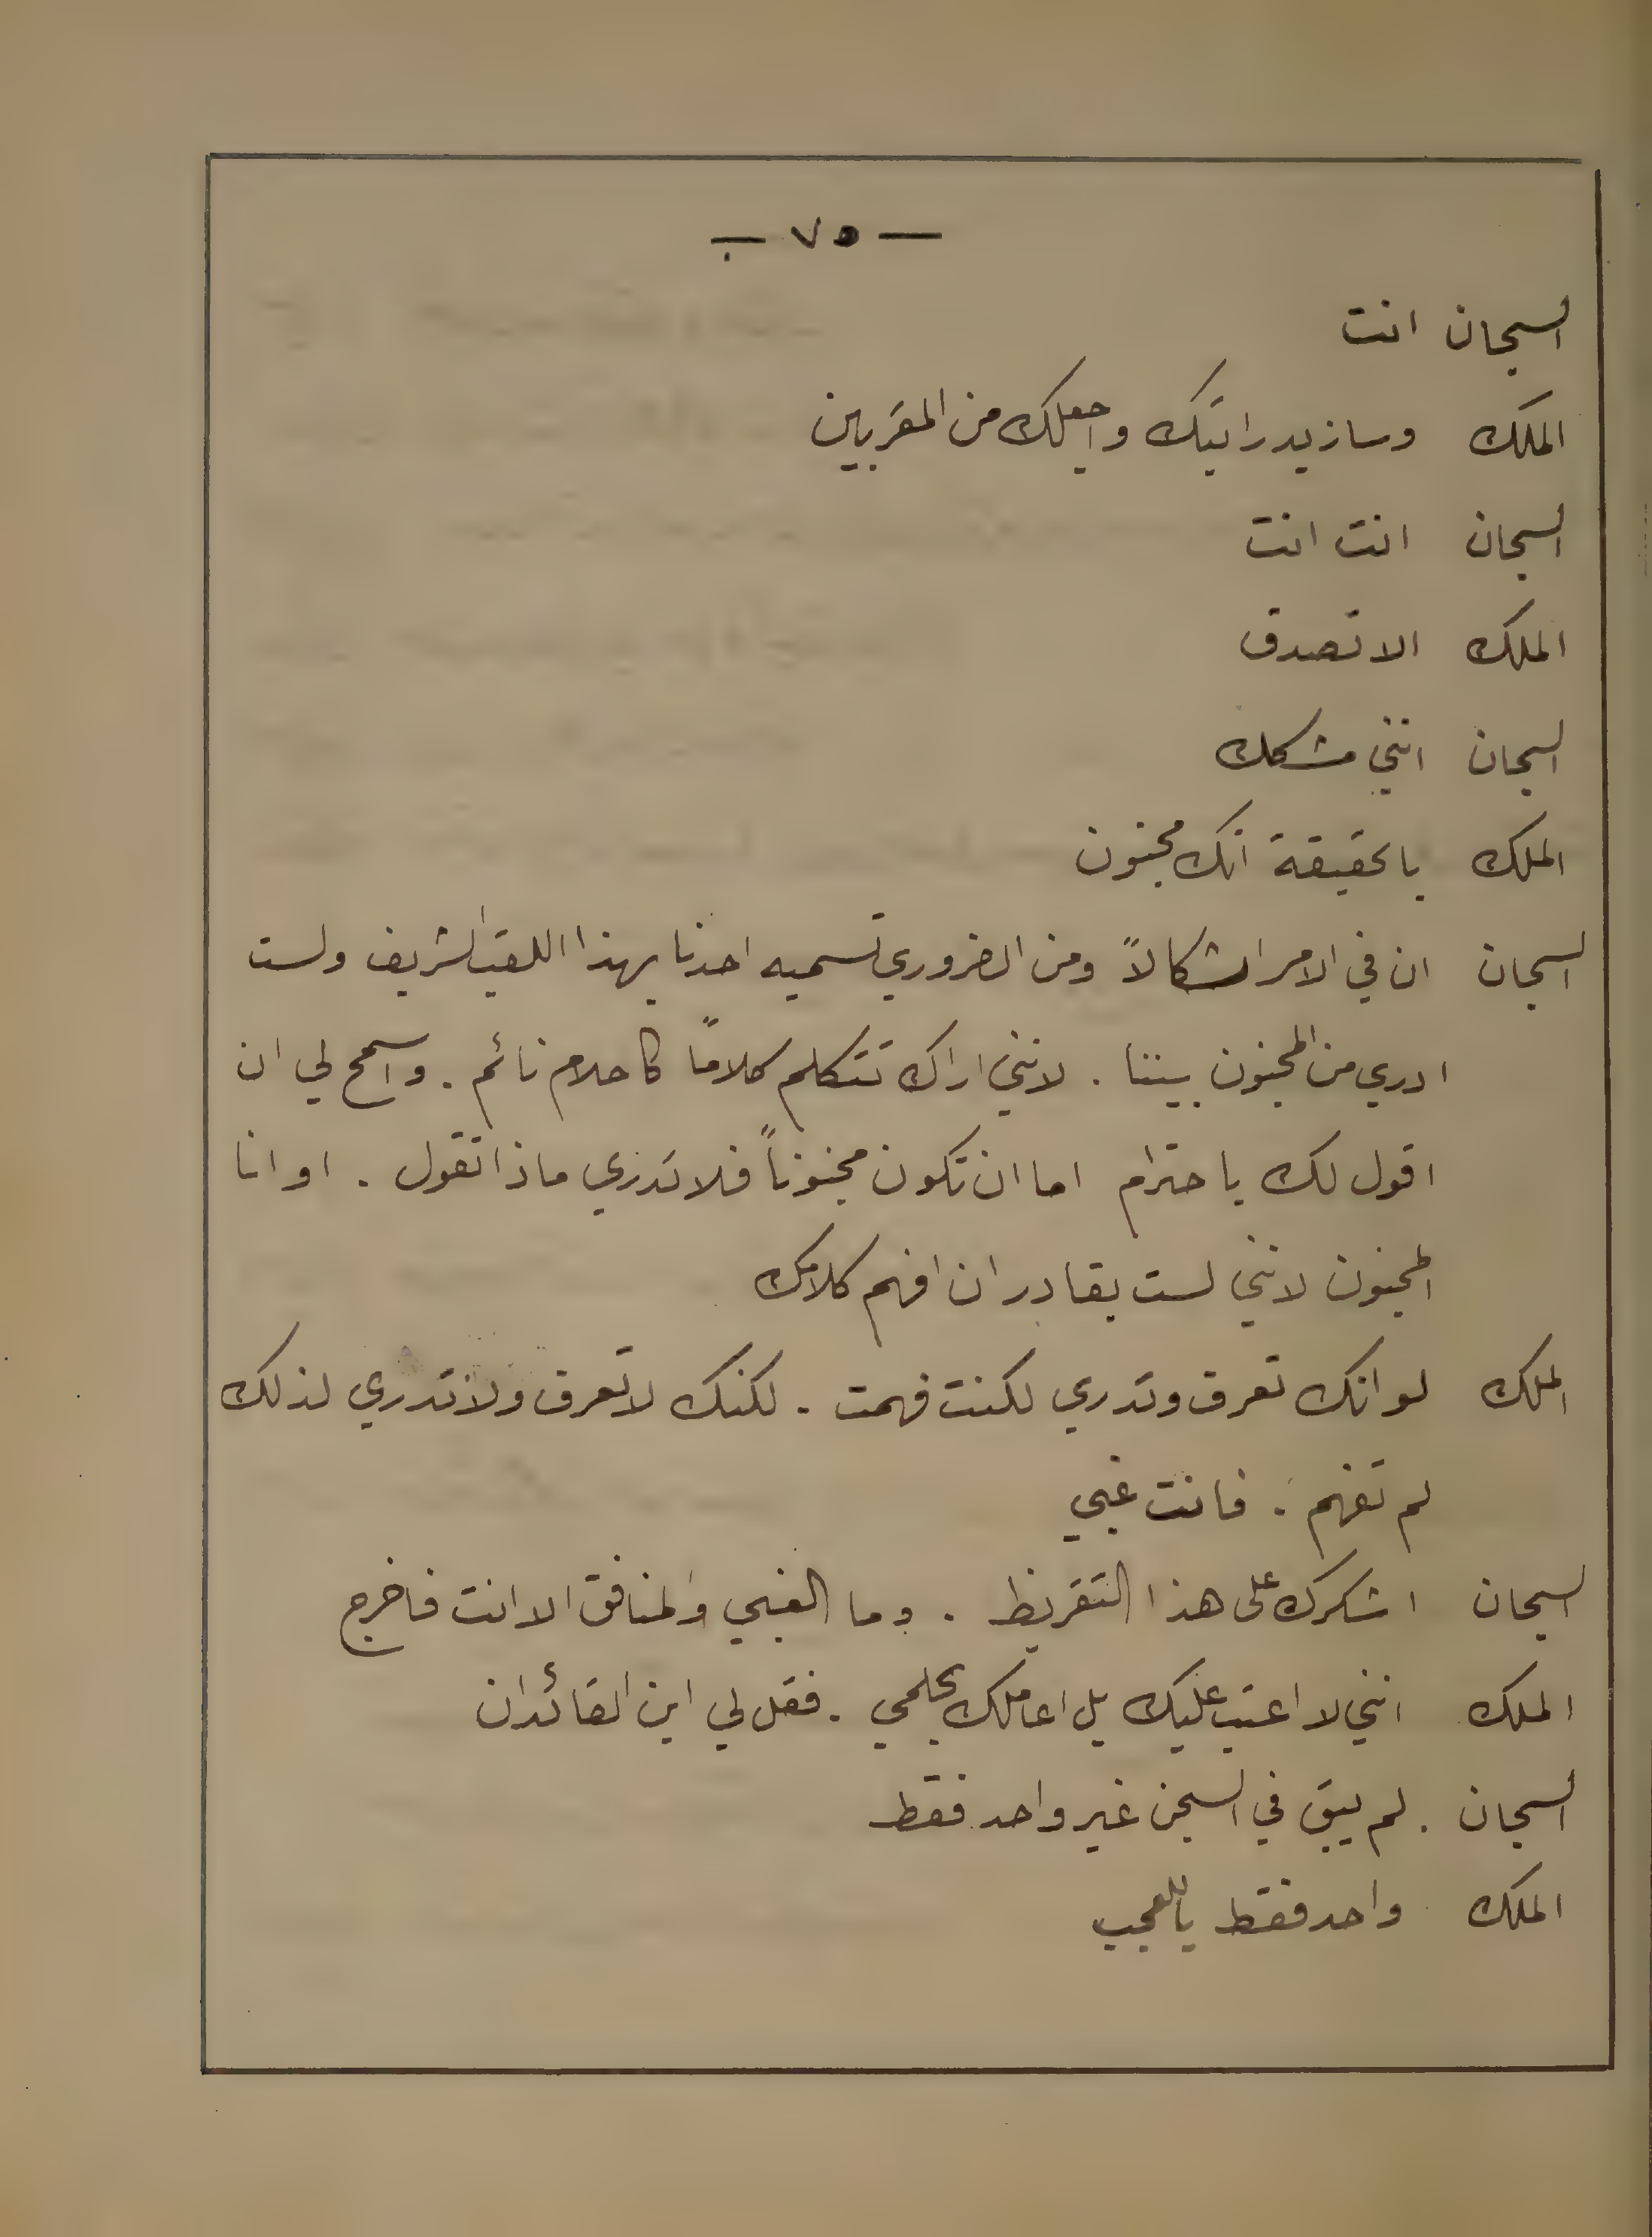 — ٧٥ —
السجان انت
الملك وسازيد راتبك واجعلك من المقربين
السجان انت انت
الملك الا تصدق
السجان انني مشكك
الملك بالحقيقة انك مجنون
السجان ان في الامر اشكالاً ومن الضروري تسميه احدنا بهذا اللقب الشريف ولست
ادري من المجنون بيننا . لانني اراك تتكلم كلاماً كاحلام نائم . واسمح لي ان
اقول لك باحترام اما ان تكون مجنوناً فلا تدري ماذا تقول . او انا
المجنون لانني لست بقادر ان افهم كلامك
الملك لو انك تعرف وتدري لكنت فهمت . لكنك لا تعرف ولا تدري لذلك
لم تفهم . فانت غبي
السجان اشكرك على هذا التقريظ . وما الغبي والمنافق الا انت فاخرج
الملك انني لا اعتب عليك بل اعاملك بحلمي . فقل لي اين القائدان
السجان . لم يبق في السجن غير واحد فقط
الملك واحد فقط ياللعجب